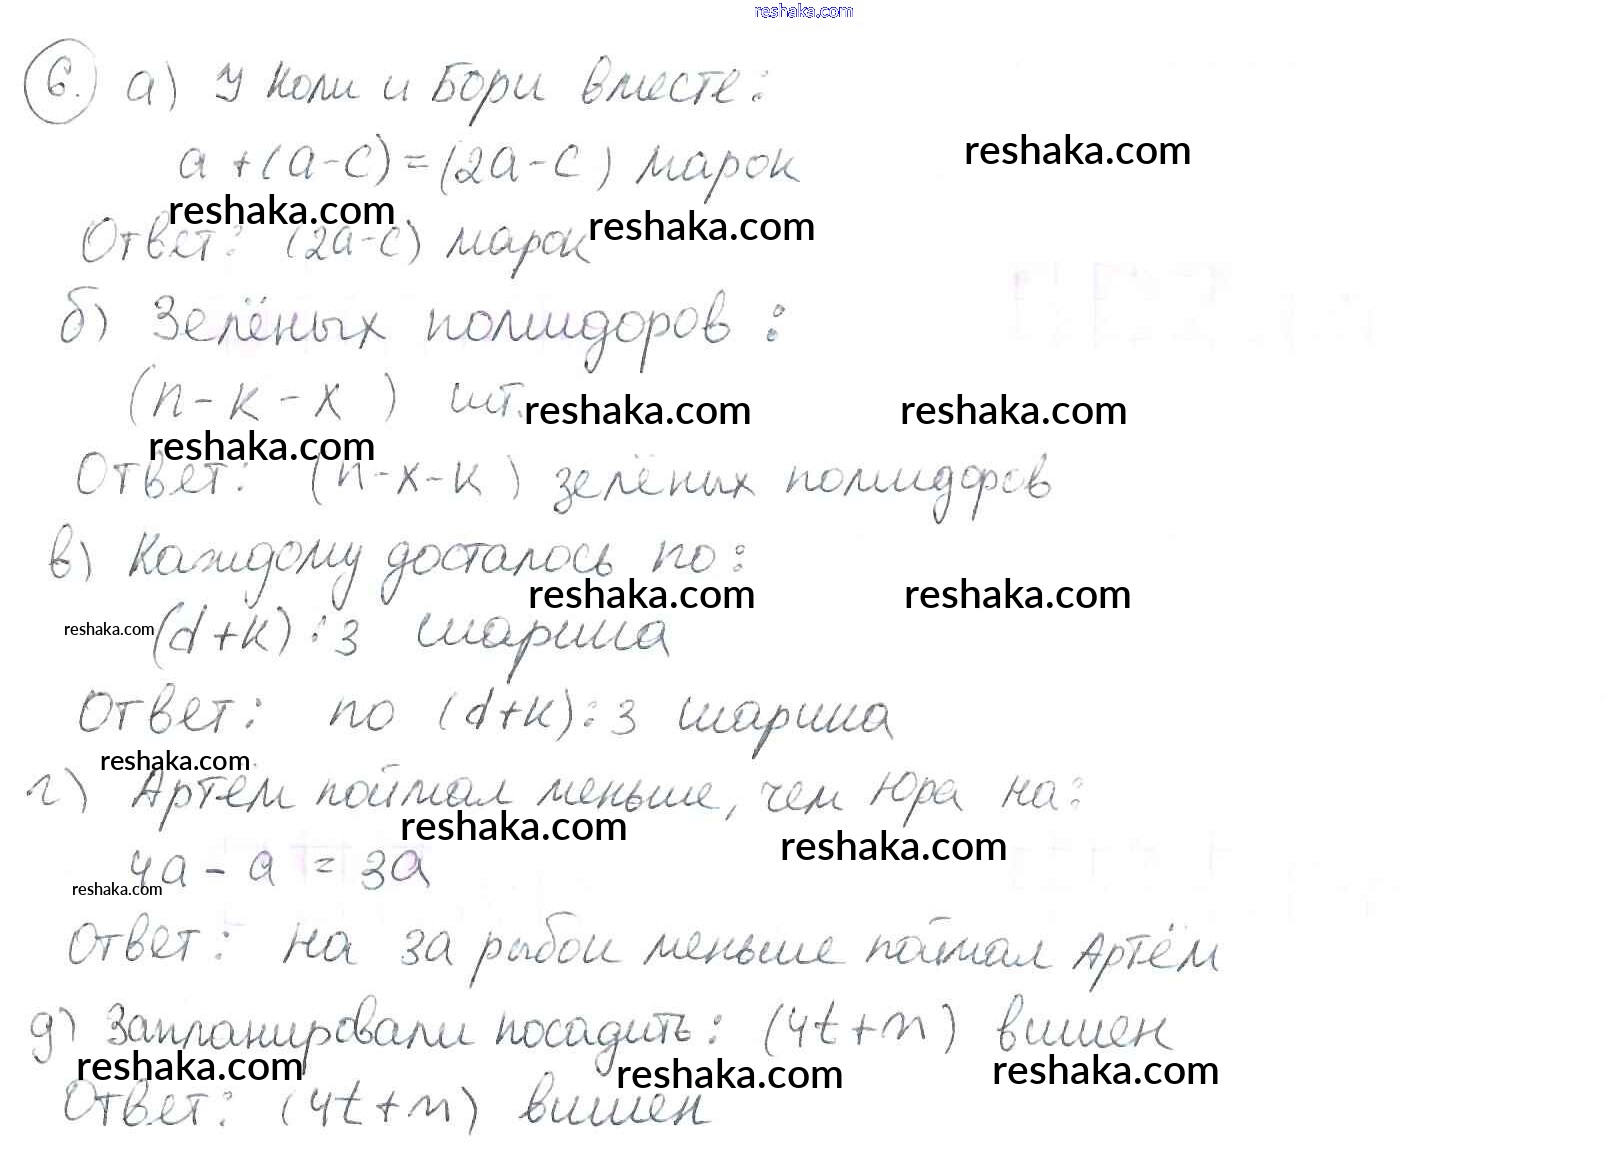 reshaka.com
6. а) У Коли и Бори вместе:
a + (a - c) = (2a - c) марок
reshaka.com
reshaka.com
reshaka.com
Ответ: (2a - c) марок
б) Зелёных помидоров :
(n - k - x ) шт.
reshaka.com
reshaka.com
reshaka.com
Ответ: (n - x - k ) зелёных помидоров
в) Каждому досталось по:
reshaka.com
reshaka.com
reshaka.com
(d + k) : 3 шарика
Ответ: по (d + k) : 3 шарика
reshaka.com
г) Артём поймал меньше, чем Юра на:
reshaka.com
reshaka.com
4a - a = 3a
reshaka.com
Ответ: на 3a рыбок меньше поймал Артём
д) Запланировали посадить: (4t + n) вишен
reshaka.com
reshaka.com
reshaka.com
Ответ: (4t + n) вишен